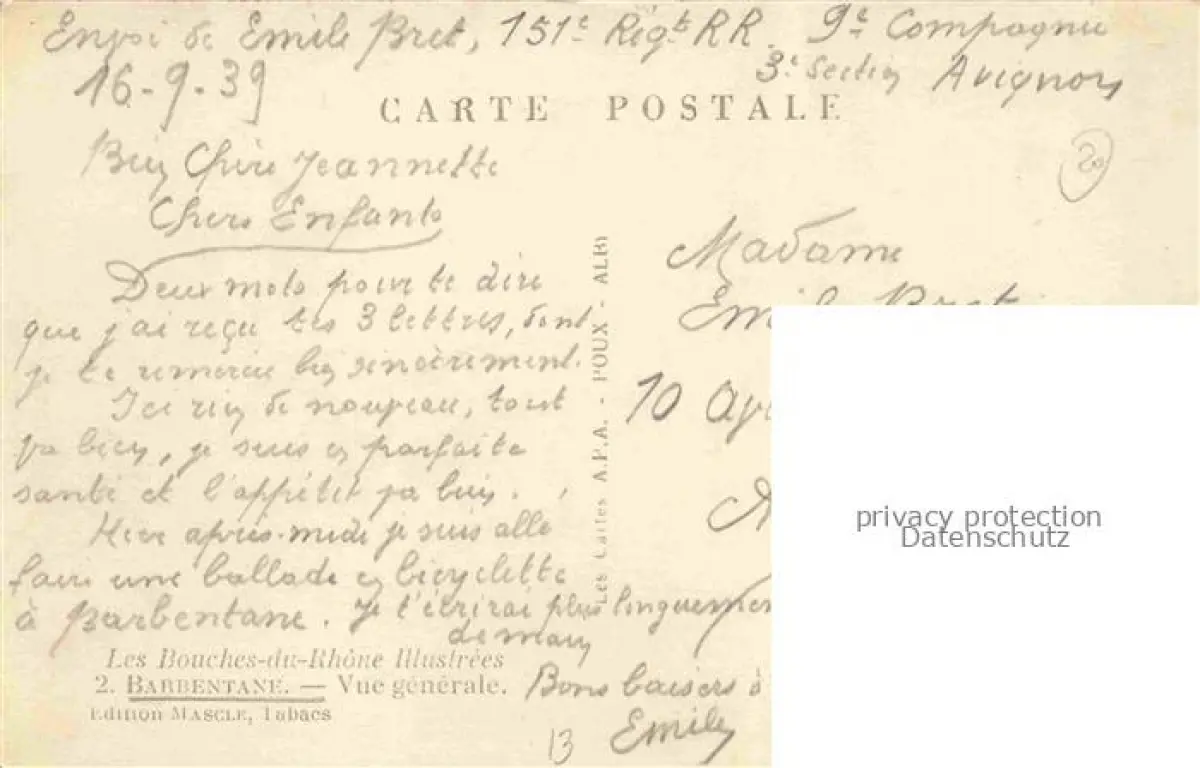 Envoi de Emile Bret, 151e Régt RR. 9e Compagnie
3e Section Avignon
16-9-39
CARTE POSTALE
20
Bien Chère Jeannette
Chers Enfants
Deux mots pour te dire
que j'ai reçu tes 3 lettres, dont
je te remercie bien sincèrement.
Ici rien de nouveau, tout
va bien, je suis en parfaite
santé et l'appétit va bien.
Hier après-midi je suis allé
faire une ballade en bicyclette
à Barbentane. Je t'écrirai plus longuement
demain
Bons baisers à
Emile
Les Bouches-du-Rhône Illustrées
2. BARBENTANE. — Vue générale.
Edition MASCLE, Tabacs
13
Les Cartes A.P.A. - POUX - ALBI
Madame
Emile Bret
10
privacy protection
Datenschutz